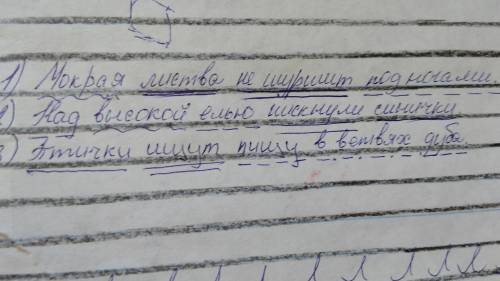 1) Мокрая листва не шуршит под ногами.
2) Над высокой елью пискнули синички
3) Птички ищут пищу в ветвях дуба.